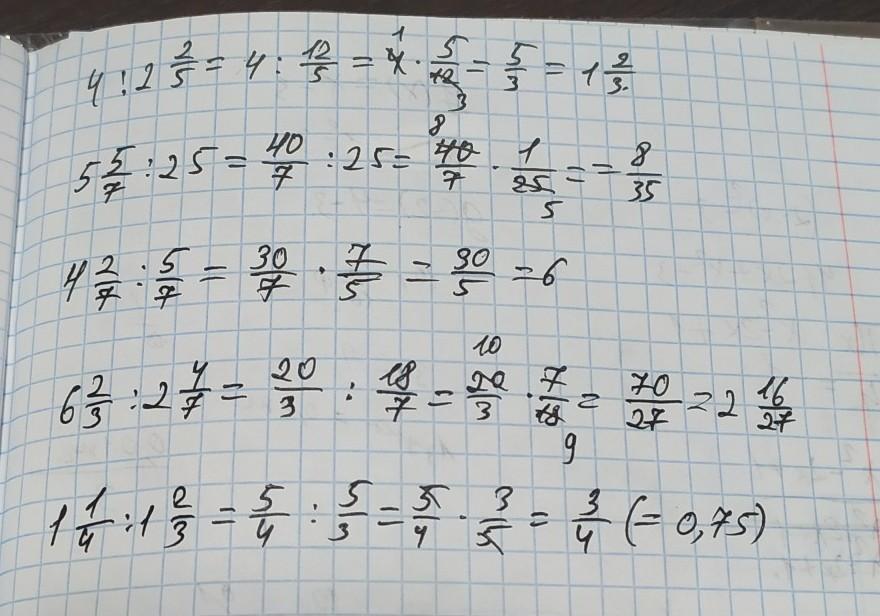 4 : 2 2/5 = 4 : 12/5 = 4 1 · 5/12 3 = 5/3 = 1 2/3.
5 5/7 : 25 = 40/7 : 25 = 40 8/7 · 1/25 5 = = 8/35
4 2/7 : 5/7 = 30/7 · 7/5 = 30/5 = 6
6 2/3 : 2 4/7 = 20/3 : 18/7 = 20 10/3 · 7/18 9 = 70/27 = 2 16/27
1 1/4 : 1 2/3 = 5/4 : 5/3 = 5/4 · 3/5 = 3/4 (= 0,75)